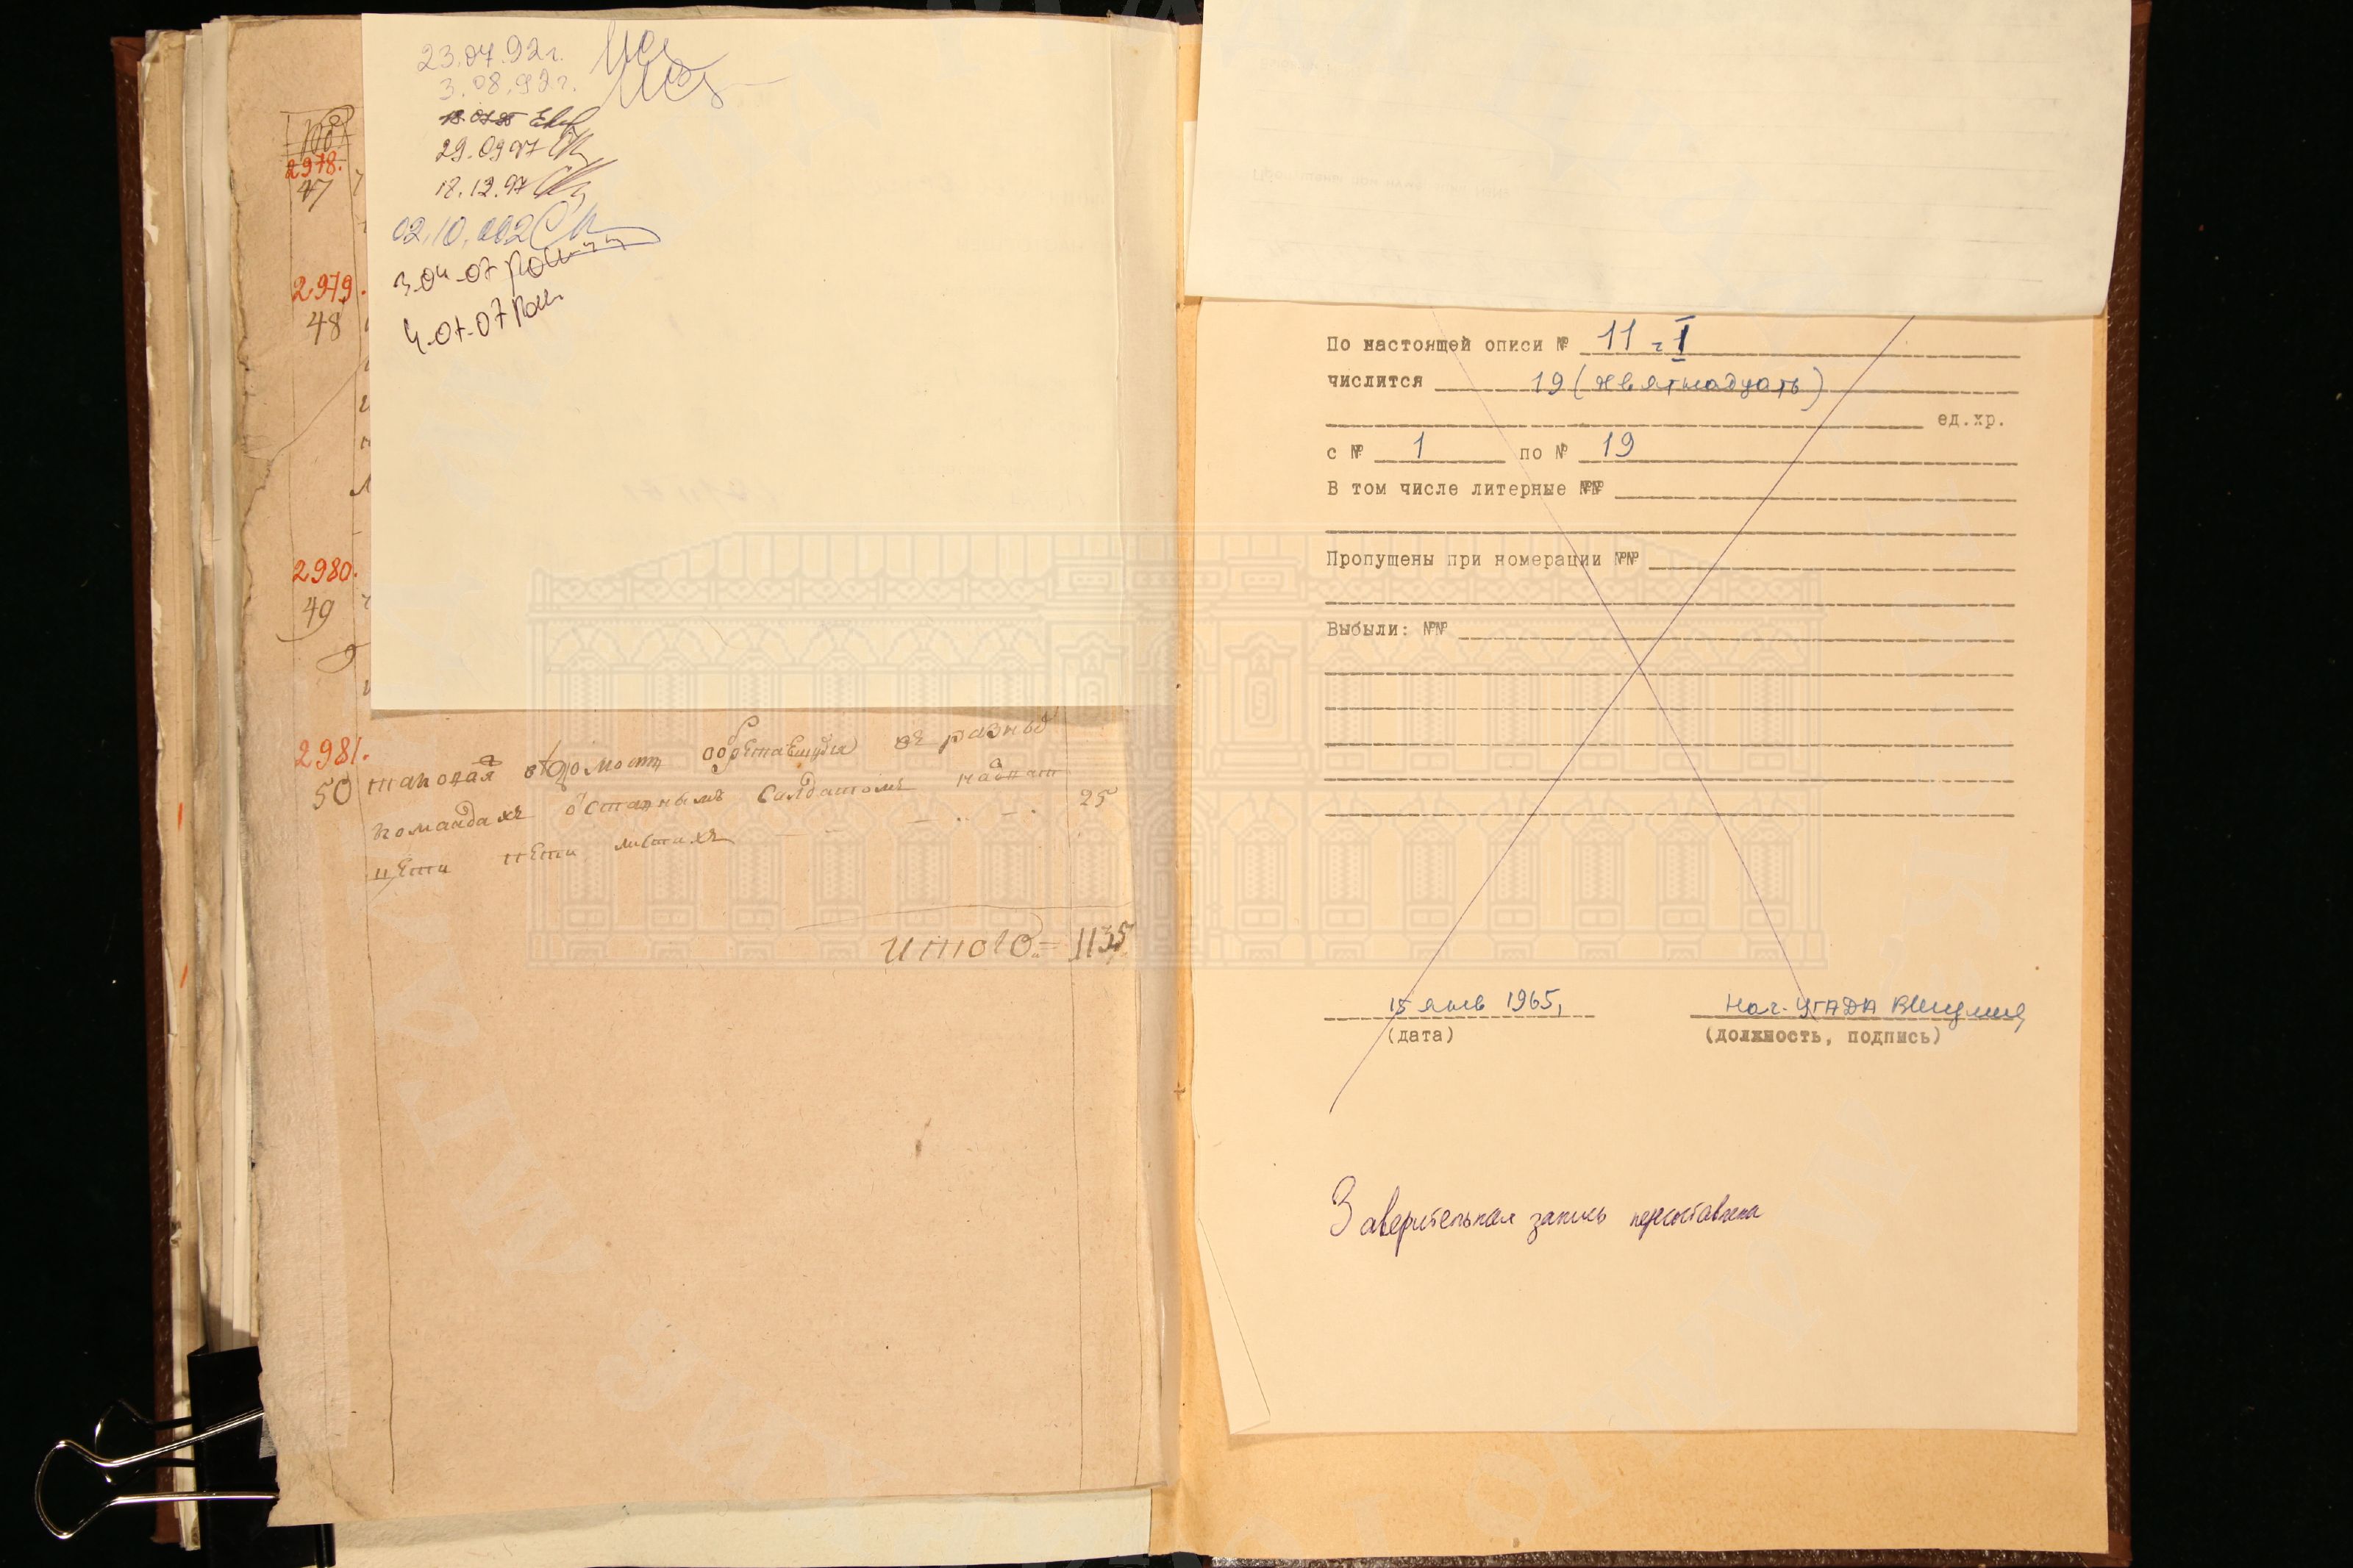 23.07.92г.
3.08.92г.
29.09.97
18.12.97
02.10.002
3.04.07
4.07.07
100
2978.
47
2979.
48
2980.
49
2981.
50 таковая ж ведомость обретающимся въ разных
командахъ отставнымъ салдатомъ на дватцети
пети листахъ 25
итого = 1135
По настоящей описи № 11 ч I
числится 19 (девятнадцать)
ед.хр.
с № 1 по № 19
В том числе литерные №№
Пропущены при номерации №№
Выбыли: №№
15 янв 1965, Нач. ЦГАДА
(дата) (должность, подпись)
Заверительная запись пересоставлена